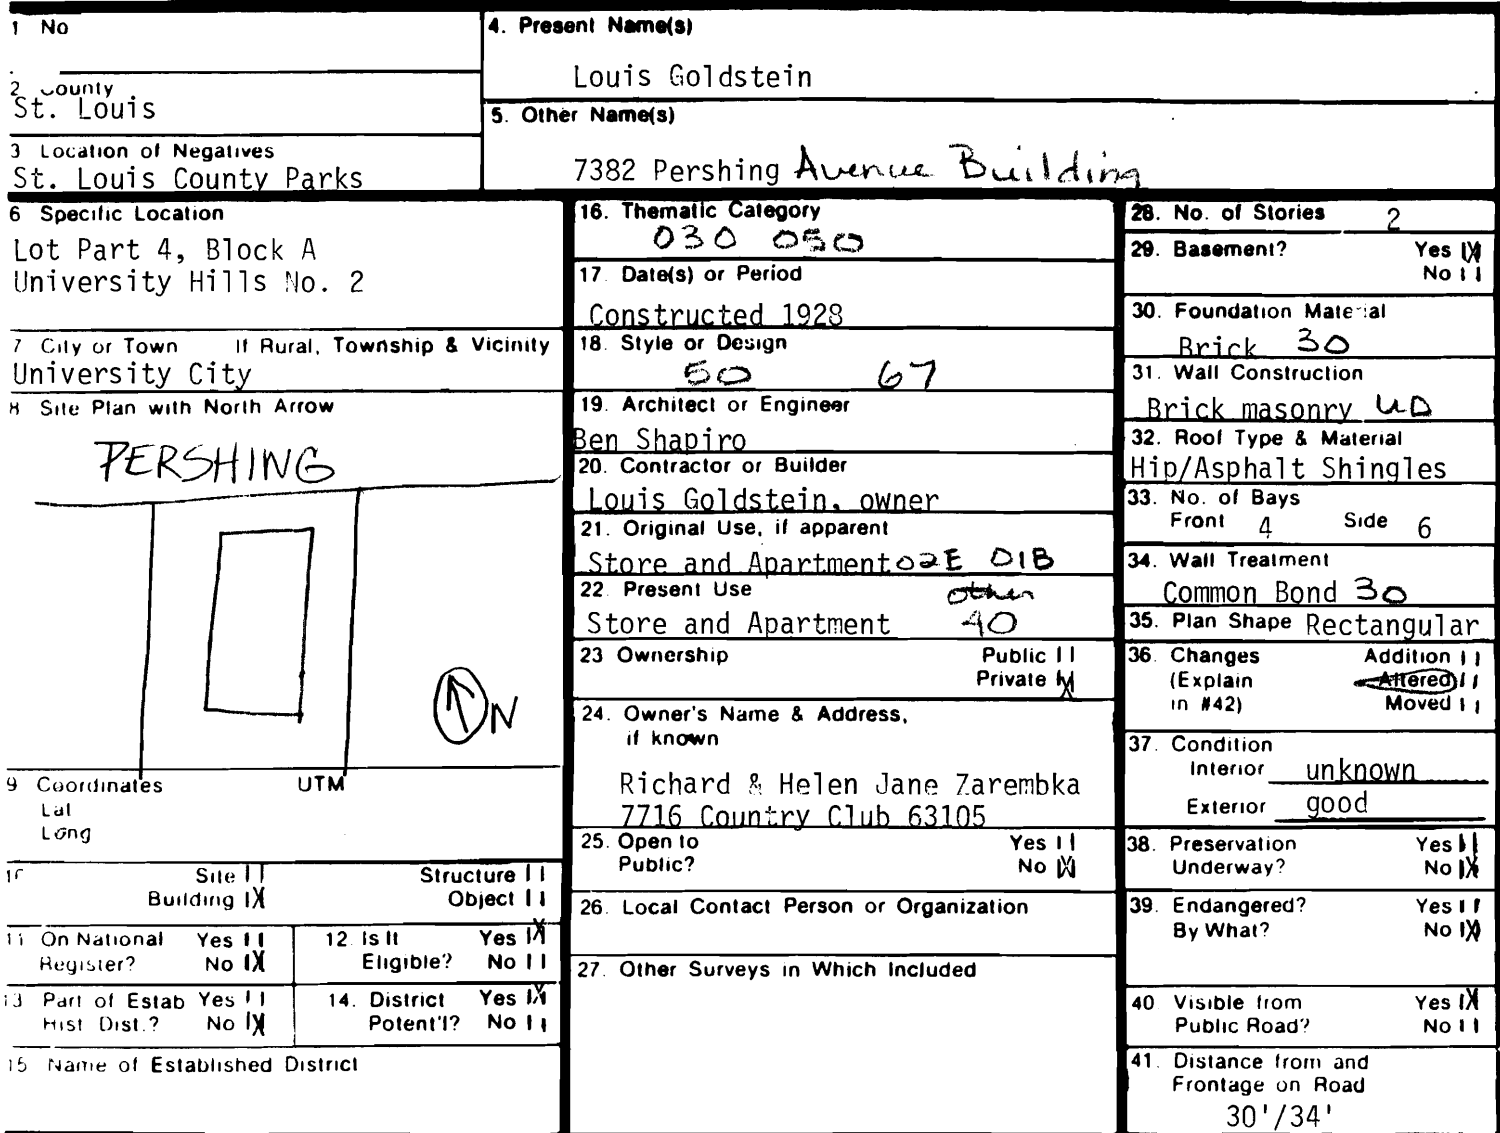 1 No
2 County
St. Louis
3 Location of Negatives
St. Louis County Parks
4. Present Name(s)
Louis Goldstein
5. Other Name(s)
7382 Pershing Avenue Building
6 Specific Location
Lot Part 4, Block A
University Hills No. 2
7 City or Town If Rural, Township & Vicinity
University City
8 Site Plan with North Arrow
PERSHING
N
9 Coordinates UTM
Lat
Long
10 Site Structure
Building X Object
11 On National Yes
Register? No X
12. Is It Yes X
Eligible? No
13 Part of Estab Yes
Hist Dist.? No X
14. District Yes X
Potent'l? No
15 Name of Established District
16. Thematic Category
030 050
17. Date(s) or Period
Constructed 1928
18. Style or Design
50 67
19. Architect or Engineer
Ben Shapiro
20. Contractor or Builder
Louis Goldstein, owner
21. Original Use, if apparent
Store and Apartment 02E 01B
22. Present Use other
Store and Apartment 40
23 Ownership Public
Private X
24. Owner's Name & Address,
if known
Richard & Helen Jane Zarembka
7716 Country Club 63105
25. Open to Yes
Public? No X
26. Local Contact Person or Organization
27. Other Surveys in Which Included
28. No. of Stories 2
29. Basement? Yes X
No
30. Foundation Material
Brick 30
31. Wall Construction
Brick masonry UD
32. Roof Type & Material
Hip/Asphalt Shingles
33. No. of Bays
Front 4 Side 6
34. Wall Treatment
Common Bond 30
35. Plan Shape Rectangular
36. Changes Addition
(Explain Altered
in #42) Moved
37. Condition
Interior unknown
Exterior good
38. Preservation Yes
Underway? No X
39. Endangered? Yes
By What? No X
40 Visible from Yes X
Public Road? No
41. Distance from and
Frontage on Road
30'/34'